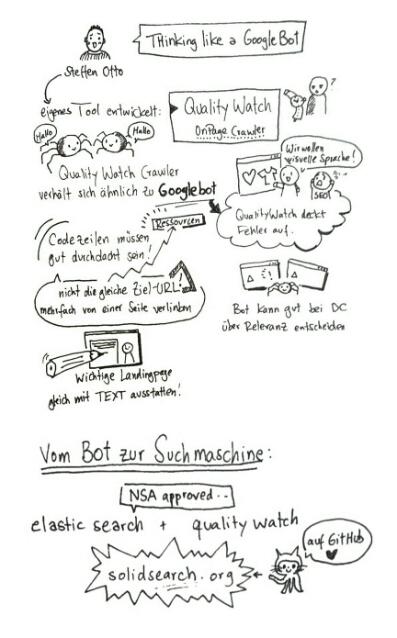 THinking like a GoogleBot
Steffen Otto
eigenes Tool entwickelt:
Hallo
Hallo
Quality Watch
OnPage Crawler
Quality Watch Crawler
verhält sich ähnlich zu Googlebot
Wir wollen
visuelle Sprache!
SEO
QualityWatch deckt
Fehler auf.
Ressourcen
Codezeilen müssen
gut durchdacht sein!
nicht die gleiche Ziel-URL
mehrfach von einer Seite verlinken
Bot kann gut bei DC
über Relevanz entscheiden
Wichtige Landingpage
gleich mit TEXT ausstatten!
Vom Bot zur Suchmaschine:
NSA approved..
elastic search + quality watch
auf GitHub
solidsearch.org